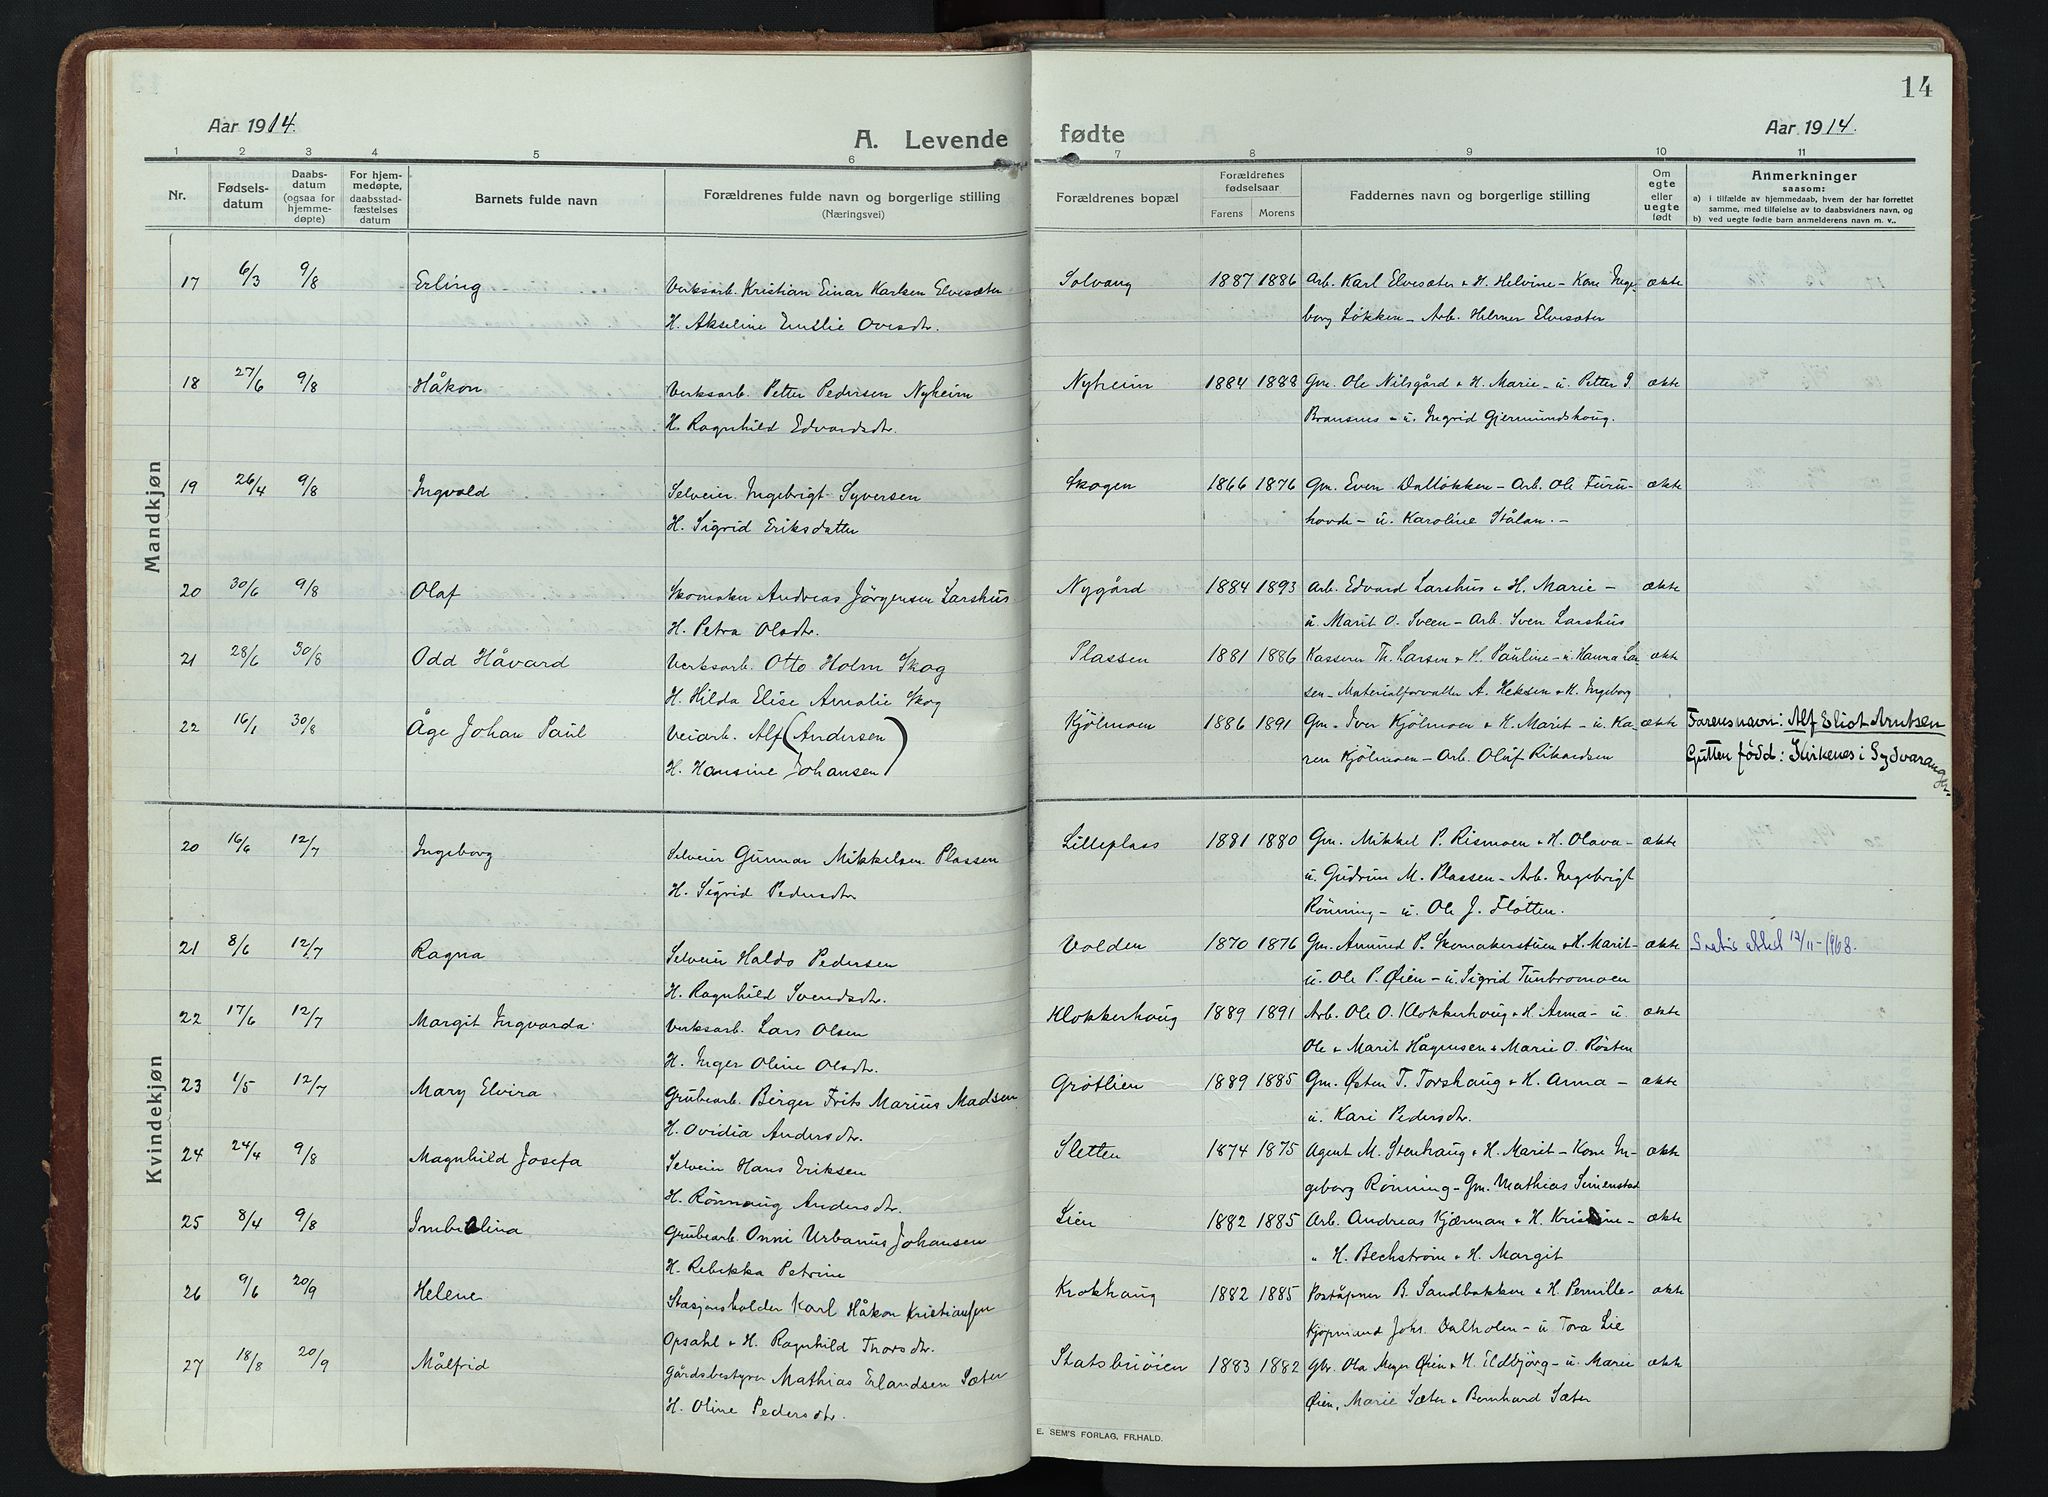 14
Aar 1914.
A. Levende fødte
Aar 1914.
1 2 3 4 5 6 7 8 9 10 11
Nr.
Fødselsdatum
Daabsdatum (ogsaa for hjemmedøpte)
For hjemmedøpte, daabsstadfæstelses datum
Barnets fulde navn
Forældrenes fulde navn og borgerlige stilling (Næringsvei)
Forældrenes bopæl
Forældrenes fødselsaar
Farens Morens
Faddernes navn og borgerlige stilling
Om egte eller uegte født
Anmerkninger saasom:
a) i tilfælde av hjemmedaab, hvem der har forrettet samme, med tilføielse av to daabsvidners navn, og
b) ved uegte fødte barn anmelderens navn m. v..
Mandkjøn
17 6/3 9/8 Erling Verksarb. Kristian Einar Karlsen Elvesæter Solvang 1887 1886 Arb. Karl Elvesæter & H. Helvine – Kone Inge- ekte
H. Akseline Emilie Ovesdtr. borg Løkken – Arb. Helmer Elvesæter
18 27/6 9/8 Håkon Verksarb. Petter Pedersen Nyheim Nyheim 1884 1888 Gm. Ole Nilsgård & H. Marie – u. Petter S. ekte
H. Ragnhild Edvardsdtr. Bransnes – u. Ingrid Gjermundshoug.
19 26/4 9/8 Ingvald Selveier Ingebrigt Syversen Skogen 1866 1876 Gm. Even Dalløkken – Arb. Ole Furu- ekte
H. Sigrid Eriksdatter hovde – u. Karoline Stålan. –
20 30/6 9/8 Olaf Skomaker Andreas Jörgensen Larshus Nygård 1884 1893 Arb. Edvard Larshus & H. Marie – ekte
H. Petra Olsdtr. u. Marit O. Sveen – Arb. Sven Larshus
21 28/6 30/8 Odd Håvard Verksarb. Otto Holm Skog Plassen 1881 1886 Kasserer Th. Larsen & H. Pauline – u. Hanna Lar- ekte
H. Hilda Elise Amalie Skog sen – Materialforvalter A. Heksen & H. Ingeborg
22 16/1 30/8 Åge Johan Paul Veiarb. Alf (Andersen) Kjölmoen 1886 1891 Gm. Iver Kjölmoen & H. Marit – u. Ka- ekte Farens navn: Alf Eliot Arntsen
H. Hansine Johansen) ren Kjölmoen – Arb. Oluf Rikardsen Gutten född: Kirkenes i Sydvaranger
Kvindekjøn
20 16/6 12/7 Ingeborg Selveier Gunnar Mikkelsen Plassen Lilleplass 1881 1880 Gm. Mikkel P. Rismoen & H. Olava – ekte
H. Sigrid Pedersdtr u. Gudrun M. Plassen – Arb. Ingebrigt
Rönning – u. Ole J. Flötten.
21 8/6 12/7 Ragna Selveier Haldo Pedersen Volden 1870 1876 Gm. Amund P. Skomakerstuen & H. Marit – ekte 12/11 – 1968.
H. Ragnhild Svendsdtr. u. Ole P. Øien – u. Sigrid Tunbromoen
22 17/6 12/7 Margit Ingvarda Verksarb. Lars Olsen Klokkerhoug 1889 1891 Arb. Ole O. Klokkerhoug & H. Anna – u. ekte
H. Inger Oline Olsdtr. Ole & Marit Hågensen & Marie O. Røsten
23 1/5 12/7 Mary Elvira Grubearb. Birger Frits Marius Madsen Grötlien 1889 1885 Gm. Østen T. Torshaug & H. Anna – ekte
H. Ovidia Andersdtr. u. Kari Pedersdtr.
24 24/4 9/8 Magnhild Josefa Selveier Hans Eriksen Sletten 1874 1875 Agent M. Stenhaug & H. Marit – Kone In- ekte
H. Rönnaug Andersdtr. geborg Rönning – Gm. Mathias Simenstad
25 8/4 9/8 Imbielina Grubearb. Onni Urbanus Johansen Lien 1882 1885 Arb. Andreas Kjærman & H. Kristine – ekte
H. Rebekka Petrine " H. Bechström & H. Margit
26 9/6 20/9 Helene Stasjonsholder Karl Håkon Kristiansen Krokhaug 1882 1885 Poståpner B. Sandbakken & H. Pernille – ekte
Opsahl & H. Ragnhild Thorsdtr. Kjöpmand Johs. Dalholen – u Tora Lie
27 18/8 20/9 Målfrid Gårdsbestyrer Mathias Erlandsen Sæter Statsbuöien 1883 1882 Gbr. Ola Meyer Øien & H. Ildbjörg – u. Marie ekte
H. Oline Pedersdtr. Øien, Marie Sæter & Bernhard Sæter
E. SEM'S FORLAG, FR.HALD.